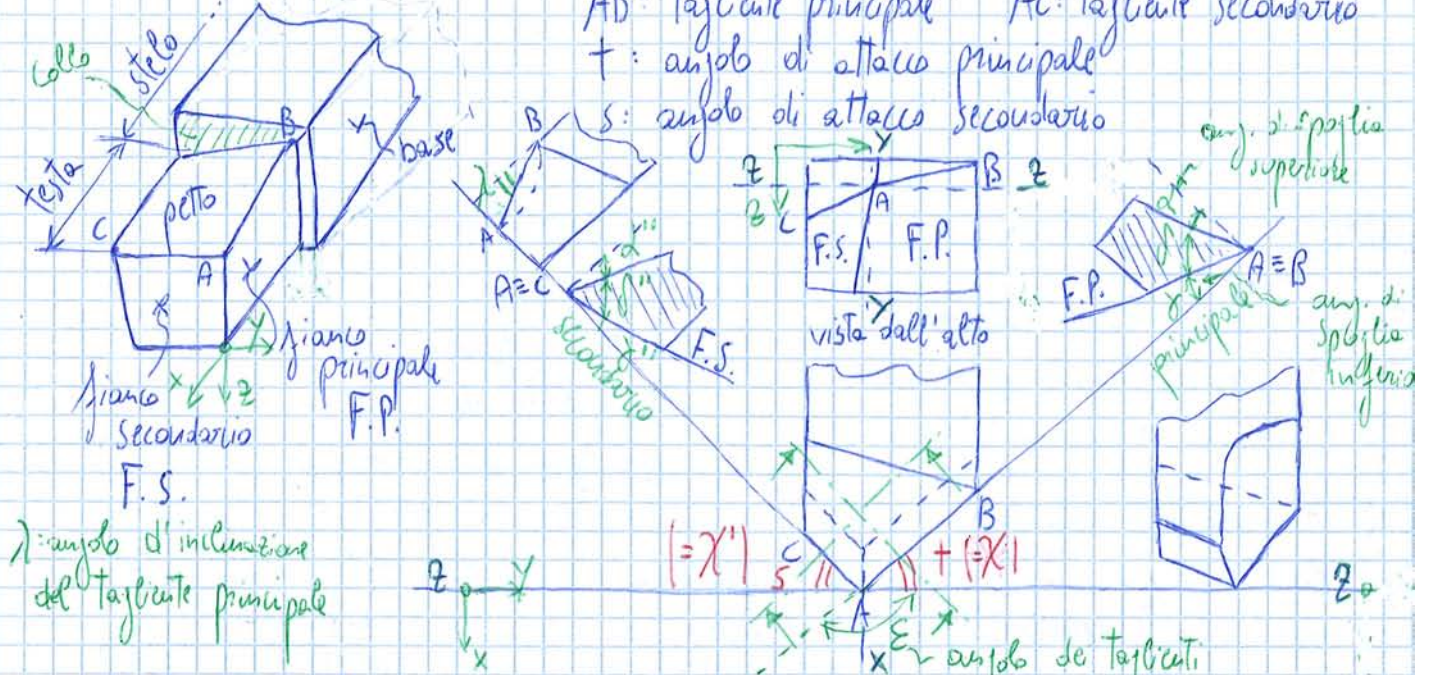 AB: tagliente principale AC: tagliente secondario
t: angolo di attacco principale
S: angolo di attacco secondario
collo
stelo
testa
B
base
C
petto
A
fianco
principale
F.P.
fianco
secondario
F.S.
X
Y
Z
λ: angolo d'inclinazione
del tagliente principale
B
λ
A
A≡C
α"
β"
γ"
F.S.
secondario
Y
Z
B
Z
C
A
F.S.
F.P.
Y
vista dall'alto
ang. di spoglia
superiore
F.P.
A≡B
principale
ang. di
spoglia
inferio
C
B
(=χ')
S
t (=χ)
Z
Y
X
A
ε
angolo dei taglienti
X
Z